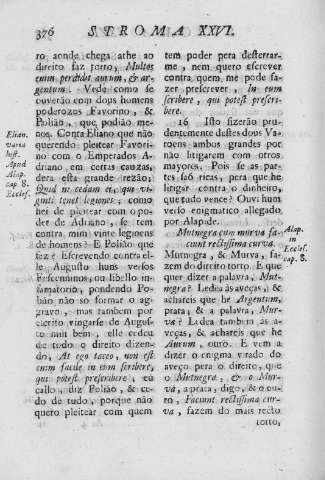 376 STROMA XXVI.
ro aonde chega athe ao
direito faz torto, Multos
enim perdidit aurum, & ar-
gentum. Vede como se
ouverão com dous homens
poderozos Favorino, &
Polião, que podião me-
nos. Conta Eliano que não
querendo pleitear Favori-
no com o Emperados A-
driano, em certas cauzas,
dera esta grande rezão;
Quid ni cedam ei, qui vi-
ginti tenet legiones; como
hei de pleitear com o po-
der de Adriano, se tem
contra mim vinte legioens
de homens? E Polião que
fez? Escrevendo contra el-
le Augusto huns versos
Fescenninos, ou libello in-
famatorio, pondendo Po-
lião não so formar o ag-
gravo, mas tambem por
escrito vingarse de Augus-
to mui bem, elle cedeu
de todo o direito dizen-
do, At ego taceo, non est
enim facile in eum scribere,
qui potest prescribere, eu
callo, diz Polião, & ce-
do de tudo, porque não
quero pleitear com quem
Elian.
varia
hist.
Apud
Alap.
cap 8.
Eccles.
tem poder pera desterrar-
me, nem quero escrever
contra quem me pode fa-
zer prescrever, In eum
scribere, qui potest prescri-
bere.
16 Isto fizerão pru-
dentemente destes dous Va-
roens ambos grandes por
não litigarem com otros
mayores. Pois se as par-
tes são ricas, pera que he
litigar contra o dinheiro,
que tudo vence? Ouvi hum
verso enigmatico allegado
por Alapide.
Mutnegra cum murva fa-
ciunt rectissima curva.
Mutnegra, & Murva, fa-
zem do direito torto. E que
quer dizer a palavra, Mut-
negra? Ledea ás aveças, &
achareis que he Argentum,
prata, & a palavra, Mur-
va? Ledea tambem ás a-
veças, & achareis que he
Aurum, ouro. E vem a
dizer o enigma virado do
aveço pera o direito, que
o Mutnegra, & o Mur-
va, a prata, digo, & o ou-
ro, Faciunt rectissima cur-
va, fazem do mais recto
torto,
Alap.
in
Eccles.
cap. 8.